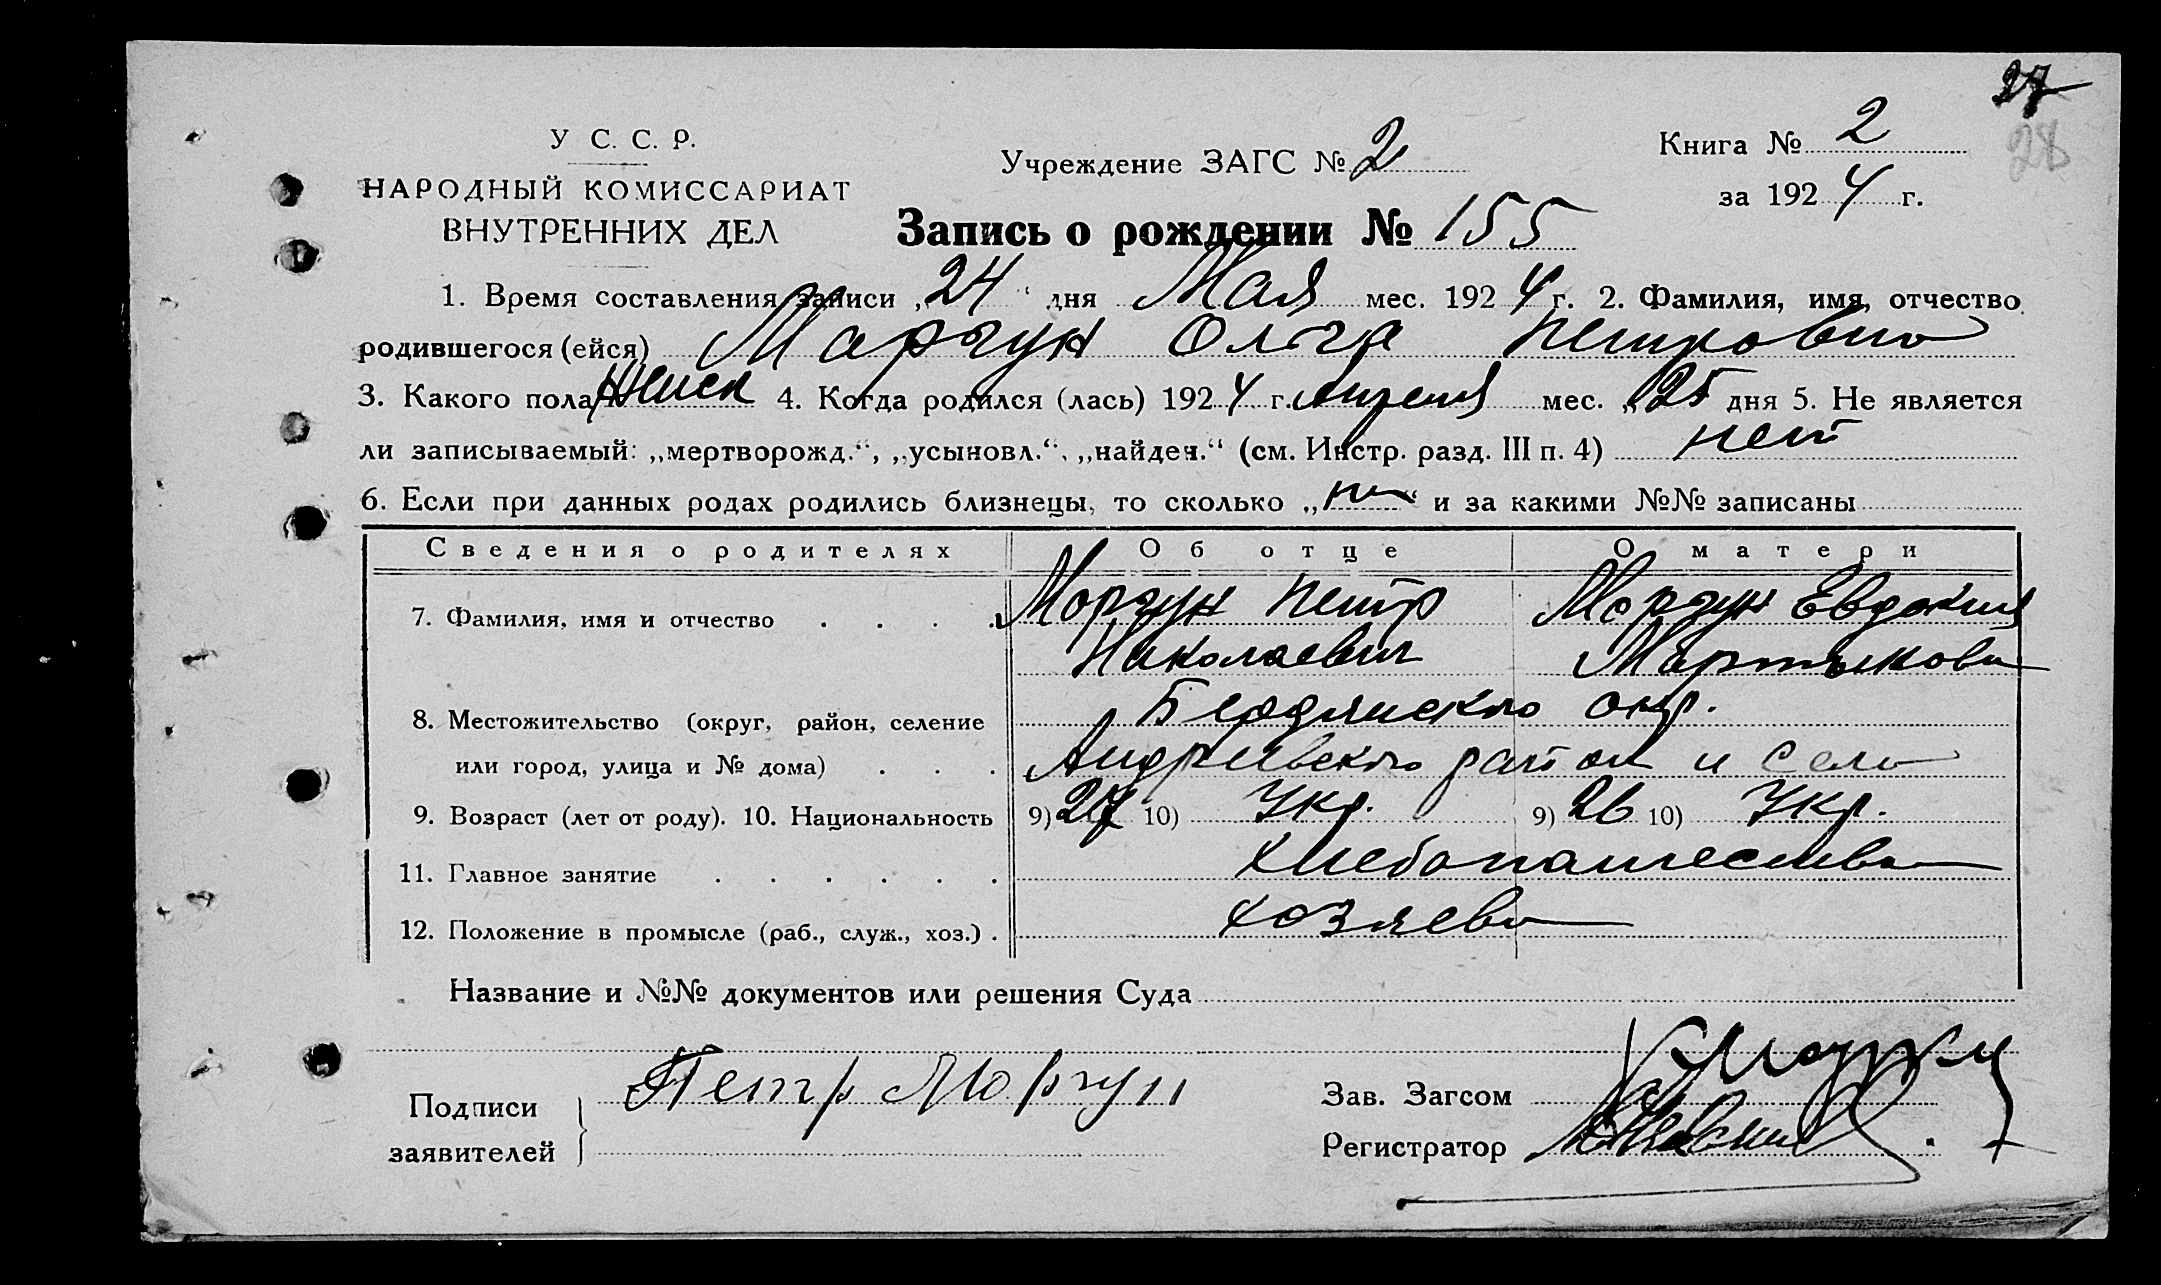 27
28
У. С. С. Р.
НАРОДНЫЙ КОМИССАРИАТ
ВНУТРЕННИХ ДЕЛ
Учреждение ЗАГС № 2
Книга № 2
за 1924 г.
Запись о рождении № 155
1. Время составления записи „24“ дня Мая мес. 1924 г. 2. Фамилия, имя, отчество
родившегося (ейся) Моргун Ольга Петровна
3. Какого пола Женск 4. Когда родился (лась) 1924 г. Апреля мес. „25 дня 5. Не является
ли записываемый: „мертворожд.“, „усыновл.“, „найден.“ (см. Инстр. разд. III п. 4) нет
6. Если при данных родах родились близнецы, то сколько „нет“ и за какими №№ записаны
Сведения о родителях Об отце О матери
7. Фамилия, имя и отчество Моргун Петр Моргун Евдокия
Николаевич
8. Местожительство (округ, район, селение Бердянского окр.
или город, улица и № дома) Андреевского район и село
9. Возраст (лет от роду). 10. Национальность 9) 27 10) Укр. 9) 26 10) Укр.
11. Главное занятие хлебопашество
12. Положение в промысле (раб., служ., хоз.) хозяева
Название и №№ документов или решения Суда
Подписи
заявителей
Петр Моргун
Зав. Загсом
Регистратор